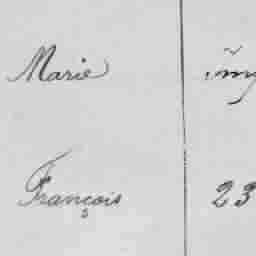 Marie
François 23